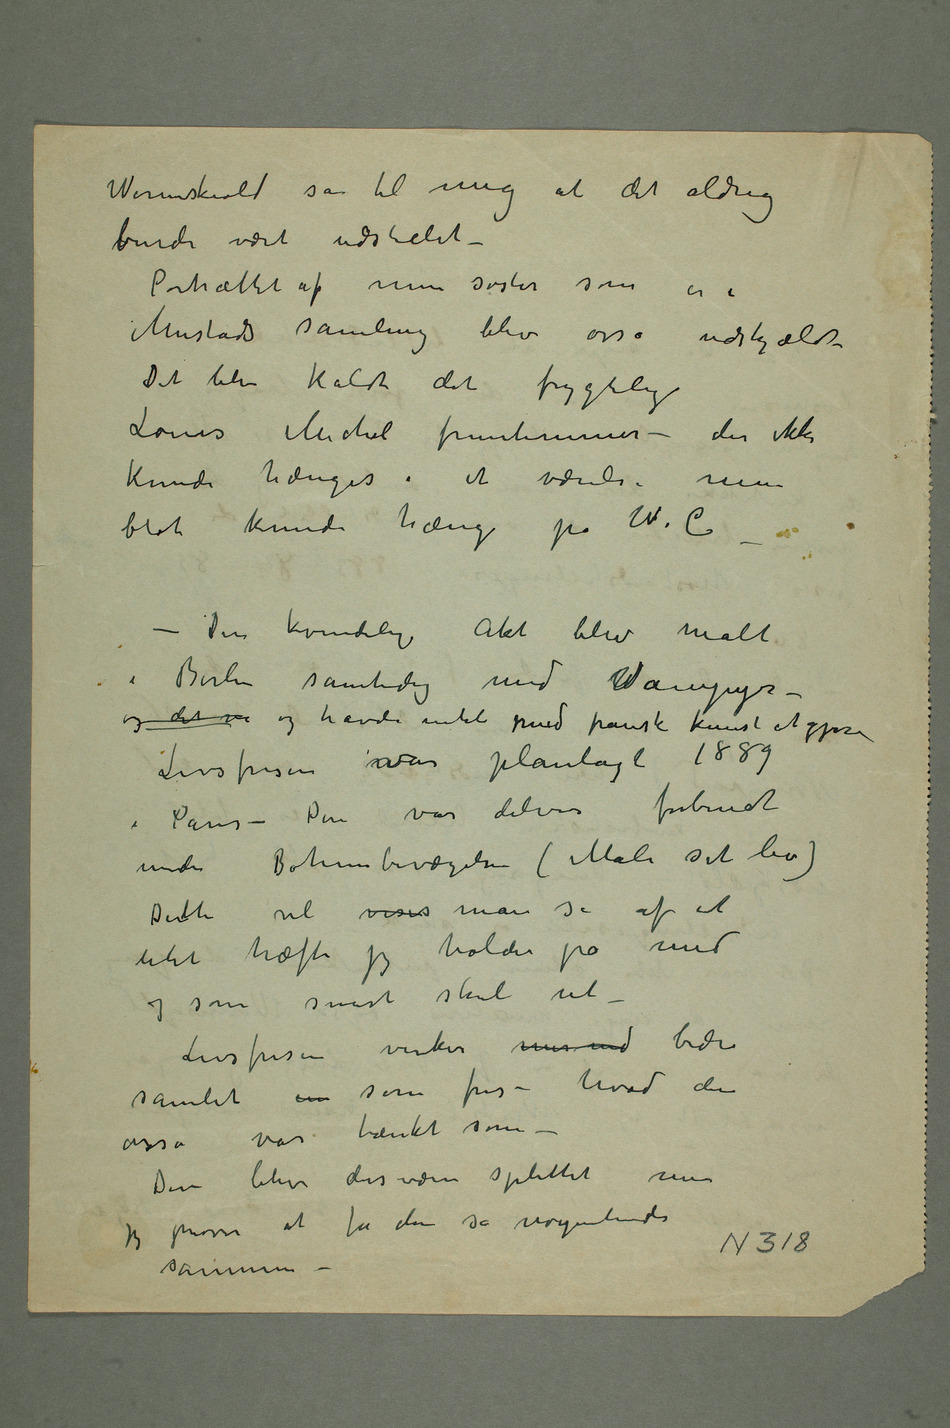 Wermskiold sa til mig at det aldrig
burde vært udstillet –
Portrættet af min søster som er i
Mustads samling blev osså udskjældt
Det blev kaldt det frygtelig
Louis Michel fruentimmer – der ikke
kunde hænges i et værelse men
blot kunde hænge på W. C –
– Den kvindelige Akt blev malt
i Berlin samtidig med Wampyr –
og det va og havde intet med fransk kunst at gjøre
Livsfrisen var planlagt 1889
i Paris – Den var delvis forbundt
under Bohembevægelsen (Male sit liv)
Dette vil vises man se af et
litet hæfte jeg holder på med
og som snart skal ut –
Livsfrisen virker mer med bedre
samlet en som fris – hvad den
osså var tænkt som –
Den blev desværre splittet men
jeg prøver at få den så nogenlunde
sammen –
N 318